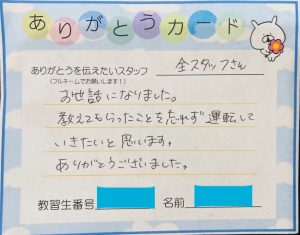 ありがとうカード
ありがとうを伝えたいスタッフ 全スタッフさん
(フルネームでお願いします!)
お世話になりました。
教えてもらったことを忘れず運転して
いきたいと思います。
ありがとうございました。
教習生番号 名前